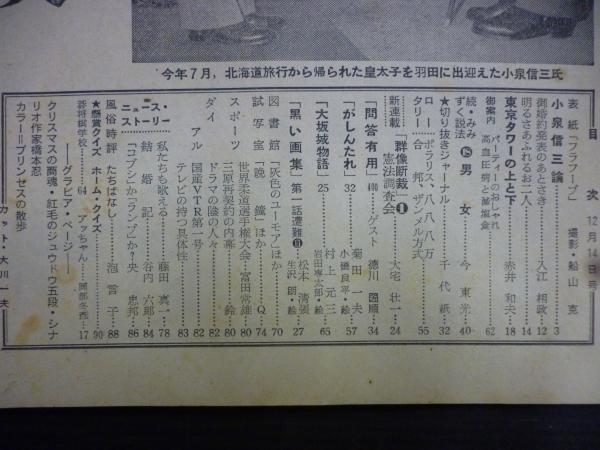 今年7月，北海道旅行から帰られた皇太子を羽田に出迎えた小泉信三氏
目次 12月14日号
表紙「フラフープ」 撮影・船山克
小泉信三論……3
御婚約発表のあとさき……入江相政 12
明るさあふれるお二人……14
東京タワーの上と下……赤井和夫 18
御案内 パーティーのおしゃれ
高血圧病と菌塩食 62
続・みみずく説法 ⑮ 男女……今東光 40
★切り抜きジャーナル……千代紙 32
ロータリー ポラリス、八、八、八万
合邦、ザンメル方式 55
新連載「群像断裁」❶……大宅壮一
憲法調査会 24
「問答有用」400……ゲスト 徳川圀順 34
「がしんたれ」32 菊田一夫
小磯良平・絵 57
「大坂城物語」25 村上元三
岩田専太郎・絵 65
「黒い画集」第一話遭難⑪ 松本清張
生沢朗・絵 27
図書館「灰色のユーモア」ほか……70
試写室「晩鐘」ほか……Q 74
スポーツ 世界柔道選手権大会……富田常雄 80
三原再契約の内幕……鈴 80
ダイアル ドラマの陰の人々……82
国産VTR第一号……82
テレビの持つ具体性……83
ニュース・ストーリー
私たちも歌える……藤田真一 78
結婚記……谷内六郎 84
「コブシ」か「ランプ」か？……央忠邦 86
風俗時評 たちばなし……泡言子 88
★懸賞クイズ ホーム・クイズ……90
碁将棋学校……64 アッちゃん……岡部冬彦 17
――グラビア・ページ――
クリスマスの商魂・紅毛のジュウドウ五段・シナリオ作家橋本忍
カラー＝プリンセスの散歩
カット・大川一夫